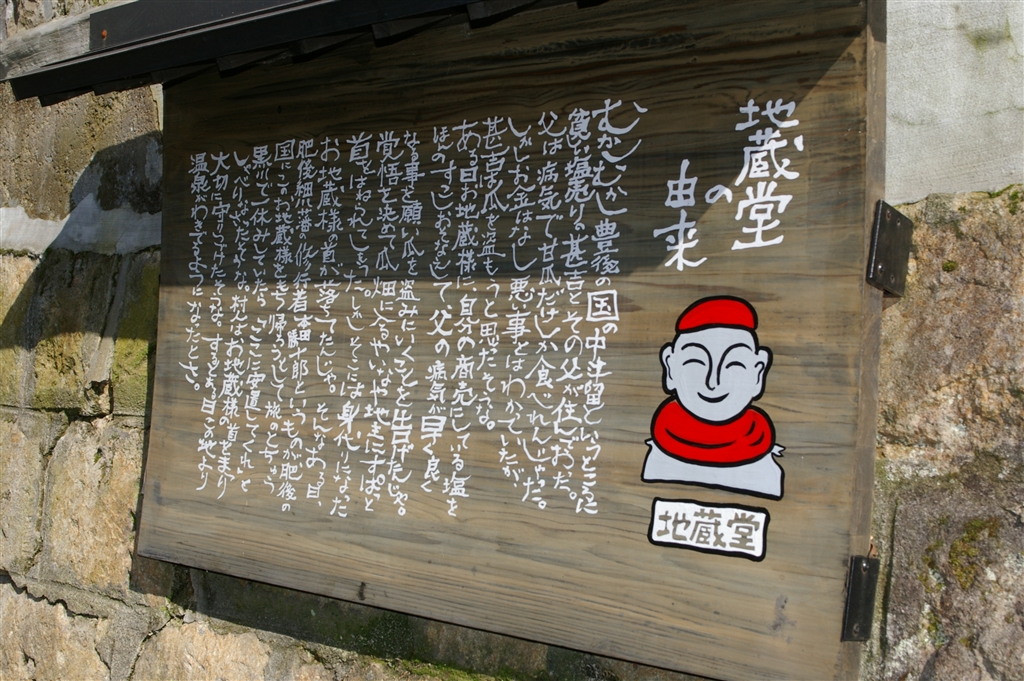 地蔵堂
の
由来
むかしむかし豊後の国の中津留というところに
貧しい塩売りの甚吉とその父が住んでおった。
父は病気で甘瓜だけしか食べれんじゃった。
しかしお金はなし悪い事とはわかっていたが、
甚吉は瓜を盗もうと思ったそうな。
ある日お地蔵様に自分の商売にしている塩を
ほんのすこしおそなえして父の病気が早く良く
なる事を願い瓜を盗みにいくことを告げたんじゃ。
覚悟を決めて瓜畑に入るやいなや地主にすぱっと
首をはねられてしもうた。しかしそこには身代りになった
お地蔵様の首が落ちてたんじゃ。そんなある日、
肥後細川藩の修行者本田勝十郎というものが肥後の
国にこのお地蔵様をもち帰ろうとして旅のとちゅう
黒川で一休みしていたら、ここに安置してくれと
しゃべりはじめたそうな。村人はお地蔵様の首をまつり
大切に守りつづけたそうな。するとある日この地より
温泉がわきでるようになったとさ。
地蔵堂